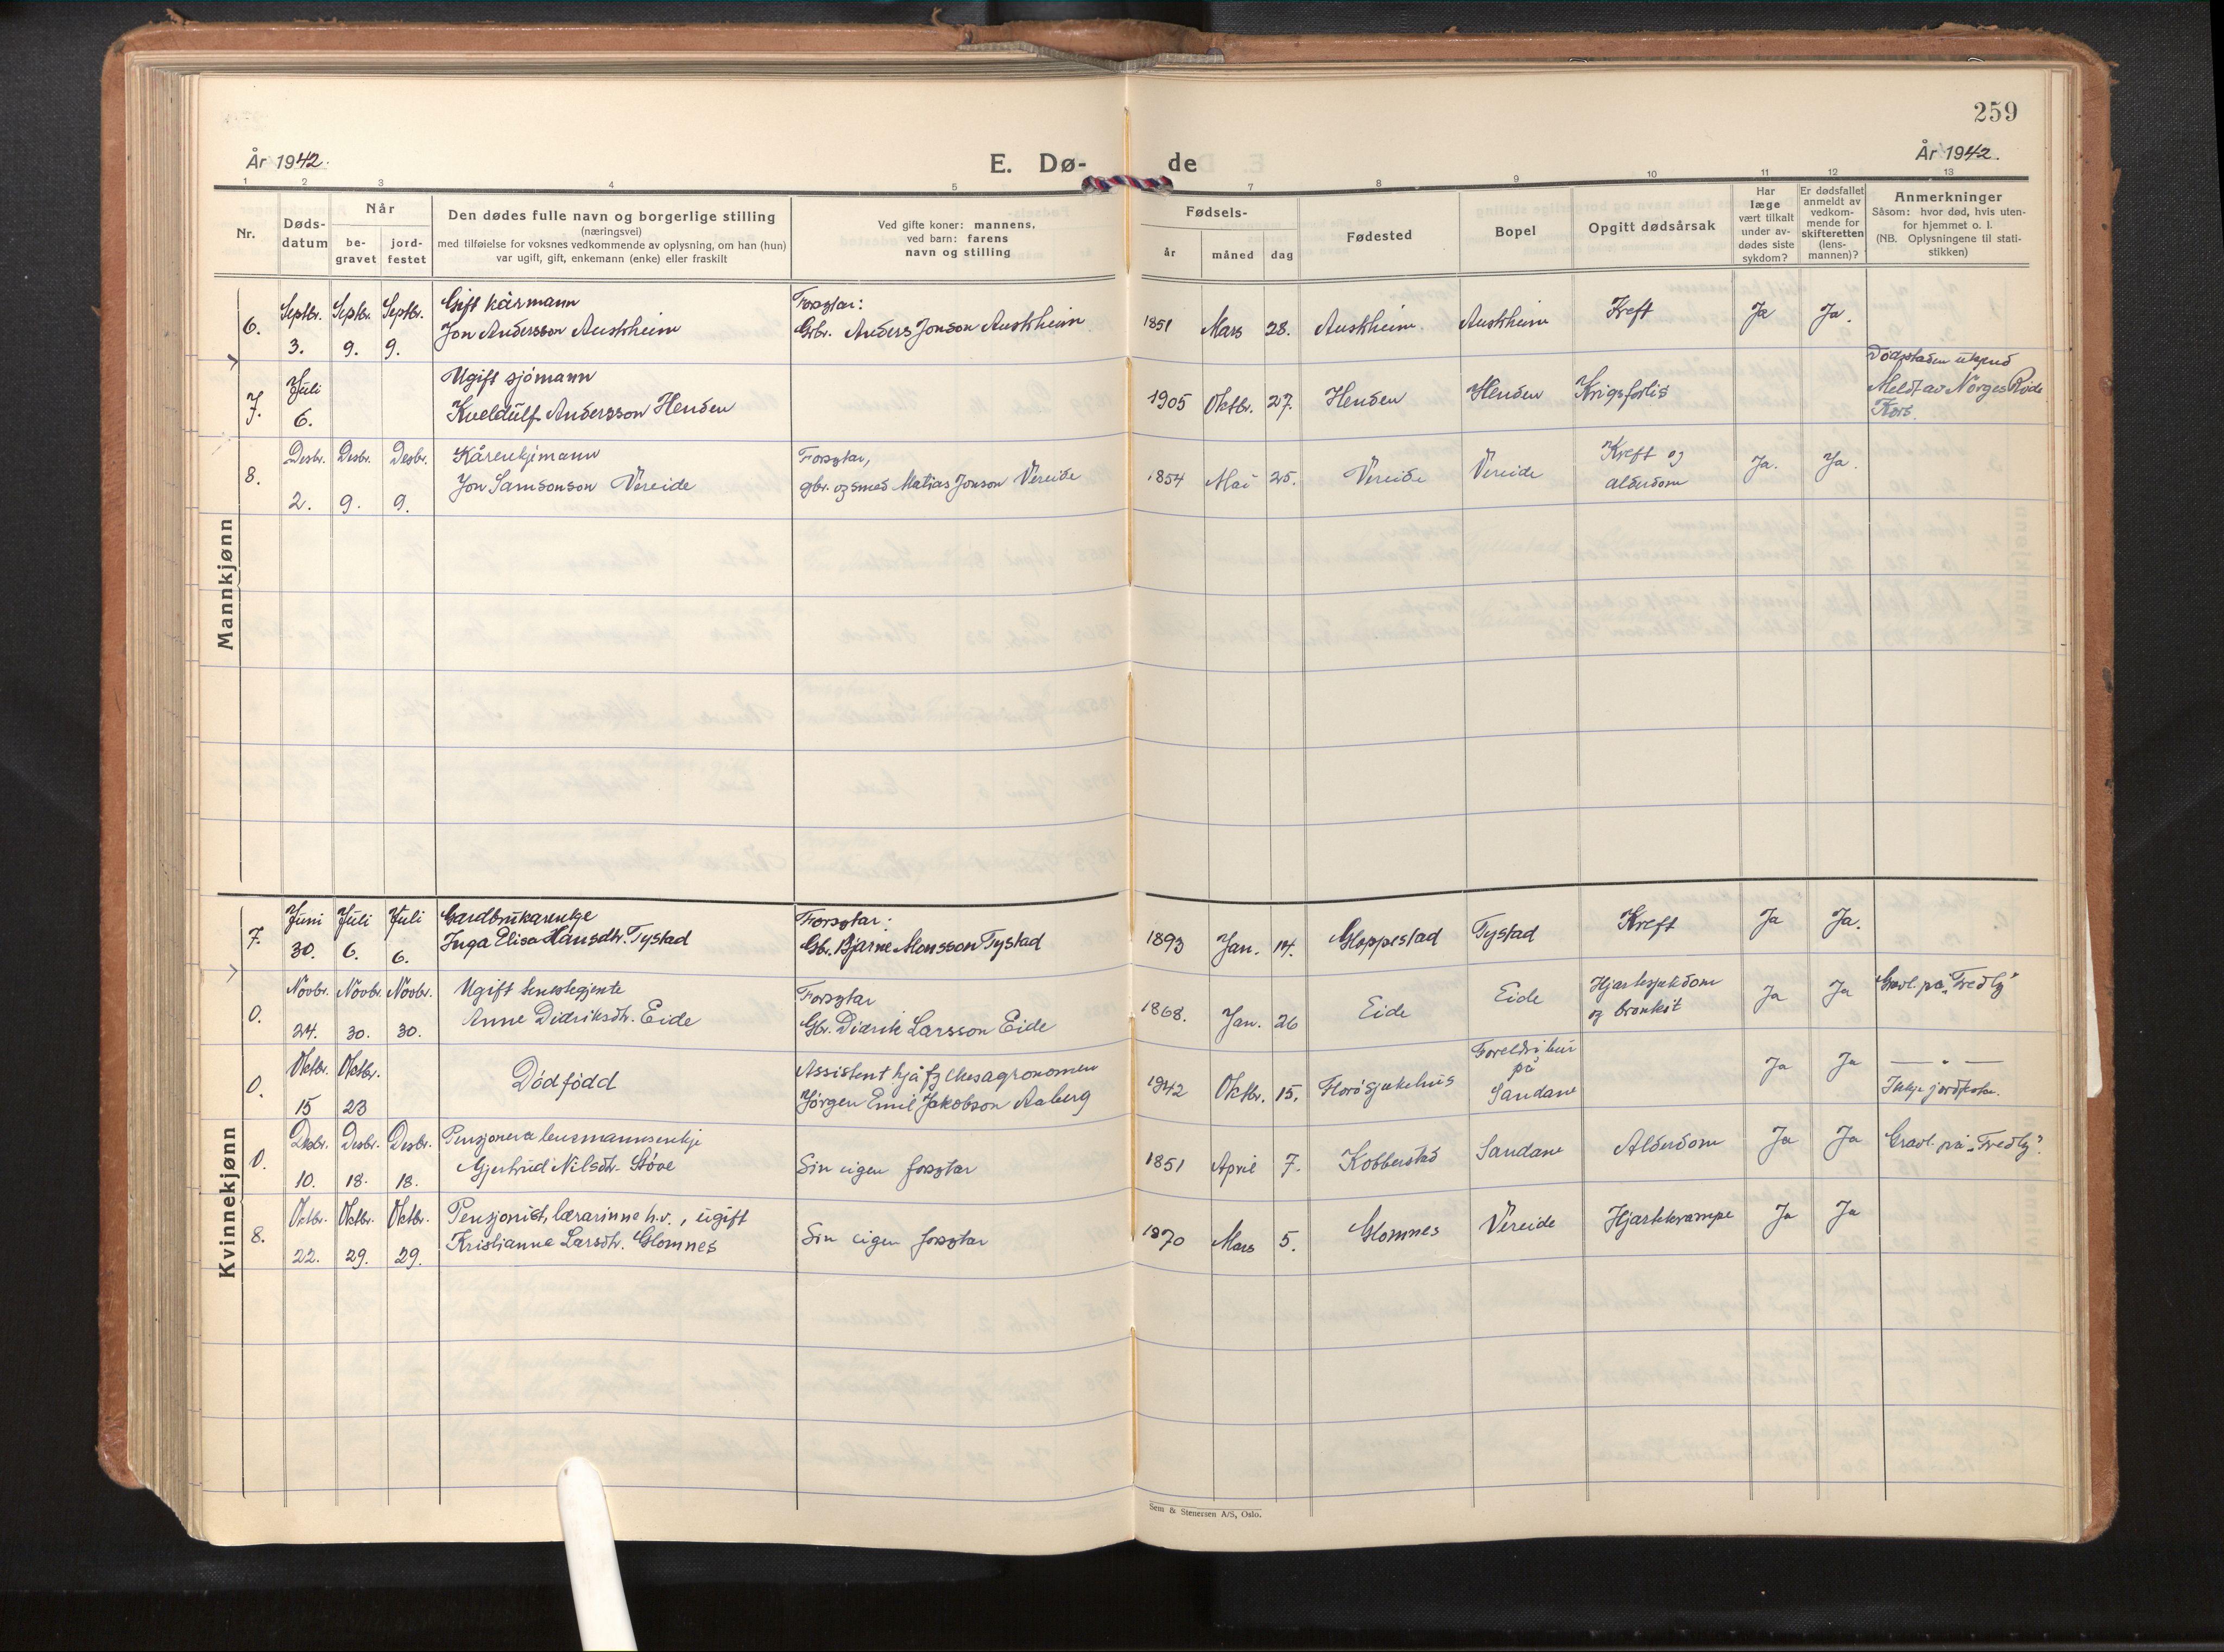 259
År 1942.
E. Dø-
de
År 1942.
1 2 3 4 5 7 8 9 10 11 12 13
Nr.
Døds-
datum
Når
be-
gravet
jord-
festet
Den dødes fulle navn og borgerlige stilling
(næringsvei)
med tilføielse for voksnes vedkommende av oplysning, om han (hun)
var ugift, gift, enkemann (enke) eller fraskilt
Ved gifte koner: mannens,
ved barn: farens
navn og stilling
Fødsels-
år
måned
dag
Fødested
Bopel
Opgitt dødsårsak
Har
læge
vært tilkalt
under av-
dødes siste
sykdom?
Er dødsfallet
anmeldt av
vedkom-
mende for
skifteretten
(lens-
mannen)?
Anmerkninger
Såsom: hvor død, hvis uten-
for hjemmet o. l.
(NB. Oplysningene til stati-
stikken)
Mannkjønn
Septbr. Septbr. Septbr. Gift kårmann Forsytar:
6. 3. 9. 9. Jon Andersson Austrheim Gbr. Anders Jonson Austrheim 1851 Mars 28. Austrheim Austrheim Kreft Ja Ja.
Juli Ugift sjømann Dødsstaden ukjend
7. 6. Kveldulf Andersson Henden 1905 Oktbr. 27. Henden Henden Krigsforlis Meldt av Norges Røde
Kors.
Desbr. Desbr. Desbr. Kårenkjemann Forsytar, Kreft og
8. 2. 9. 9. Jon Samsonson Vereide gbr. og smed Matias Jonson Vereide 1854 Mai 25. Vereide Vereide alderdom Ja. Ja.
Kvinnekjønn
Juni Juli Juli Gardbrukarenkje Forsytar:
7. 30. 6. 6. Inga Elisa Hansdtr. Tystad Gbr. Bjarne Monsson Tystad 1893 Jan. 14. Gloppestad Tystad Kreft Ja Ja.
Novbr. Novbr. Novbr. Ugift tenestegjente Forsytar Hjartesjukdom Gravl. på "Fredly"
0. 24. 30. 30. Anne Didriksdtr. Eide Gbr. Didrik Larsson Eide 1868. Jan. 26 Eide Eide og bronkit Ja Ja
Oktbr. Oktbr. Dødfødd Assistent hjå fylkesagronomen Foreldri bur på
0. 15 23 Jørgen Emil Jakobson Aaberg 1942 Oktbr. 15. Florø sjukehus Sandane Ja Ja — " —
Ikkje jordfesta.
Desbr. Desbr. Desbr. Pensjonera lensmannsenkje
0. 10. 18. 18. Gjertrud Nilsdtr. Støve Sin eigen forsytar 1851 April 7. Kobberstad Sandane Alderdom Ja Ja Gravl. på "Fredly".
Oktbr. Oktbr. Oktbr. Pensjonist, lærarinne h.v., ugift
8. 22. 29. 29. Kristianna Larsdtr. Glomnes Sin eigen forsytar 1870 Mars 5. Glomnes Vereide Hjartekrampe Ja Ja
Sem & Stenersen A/S, Oslo.